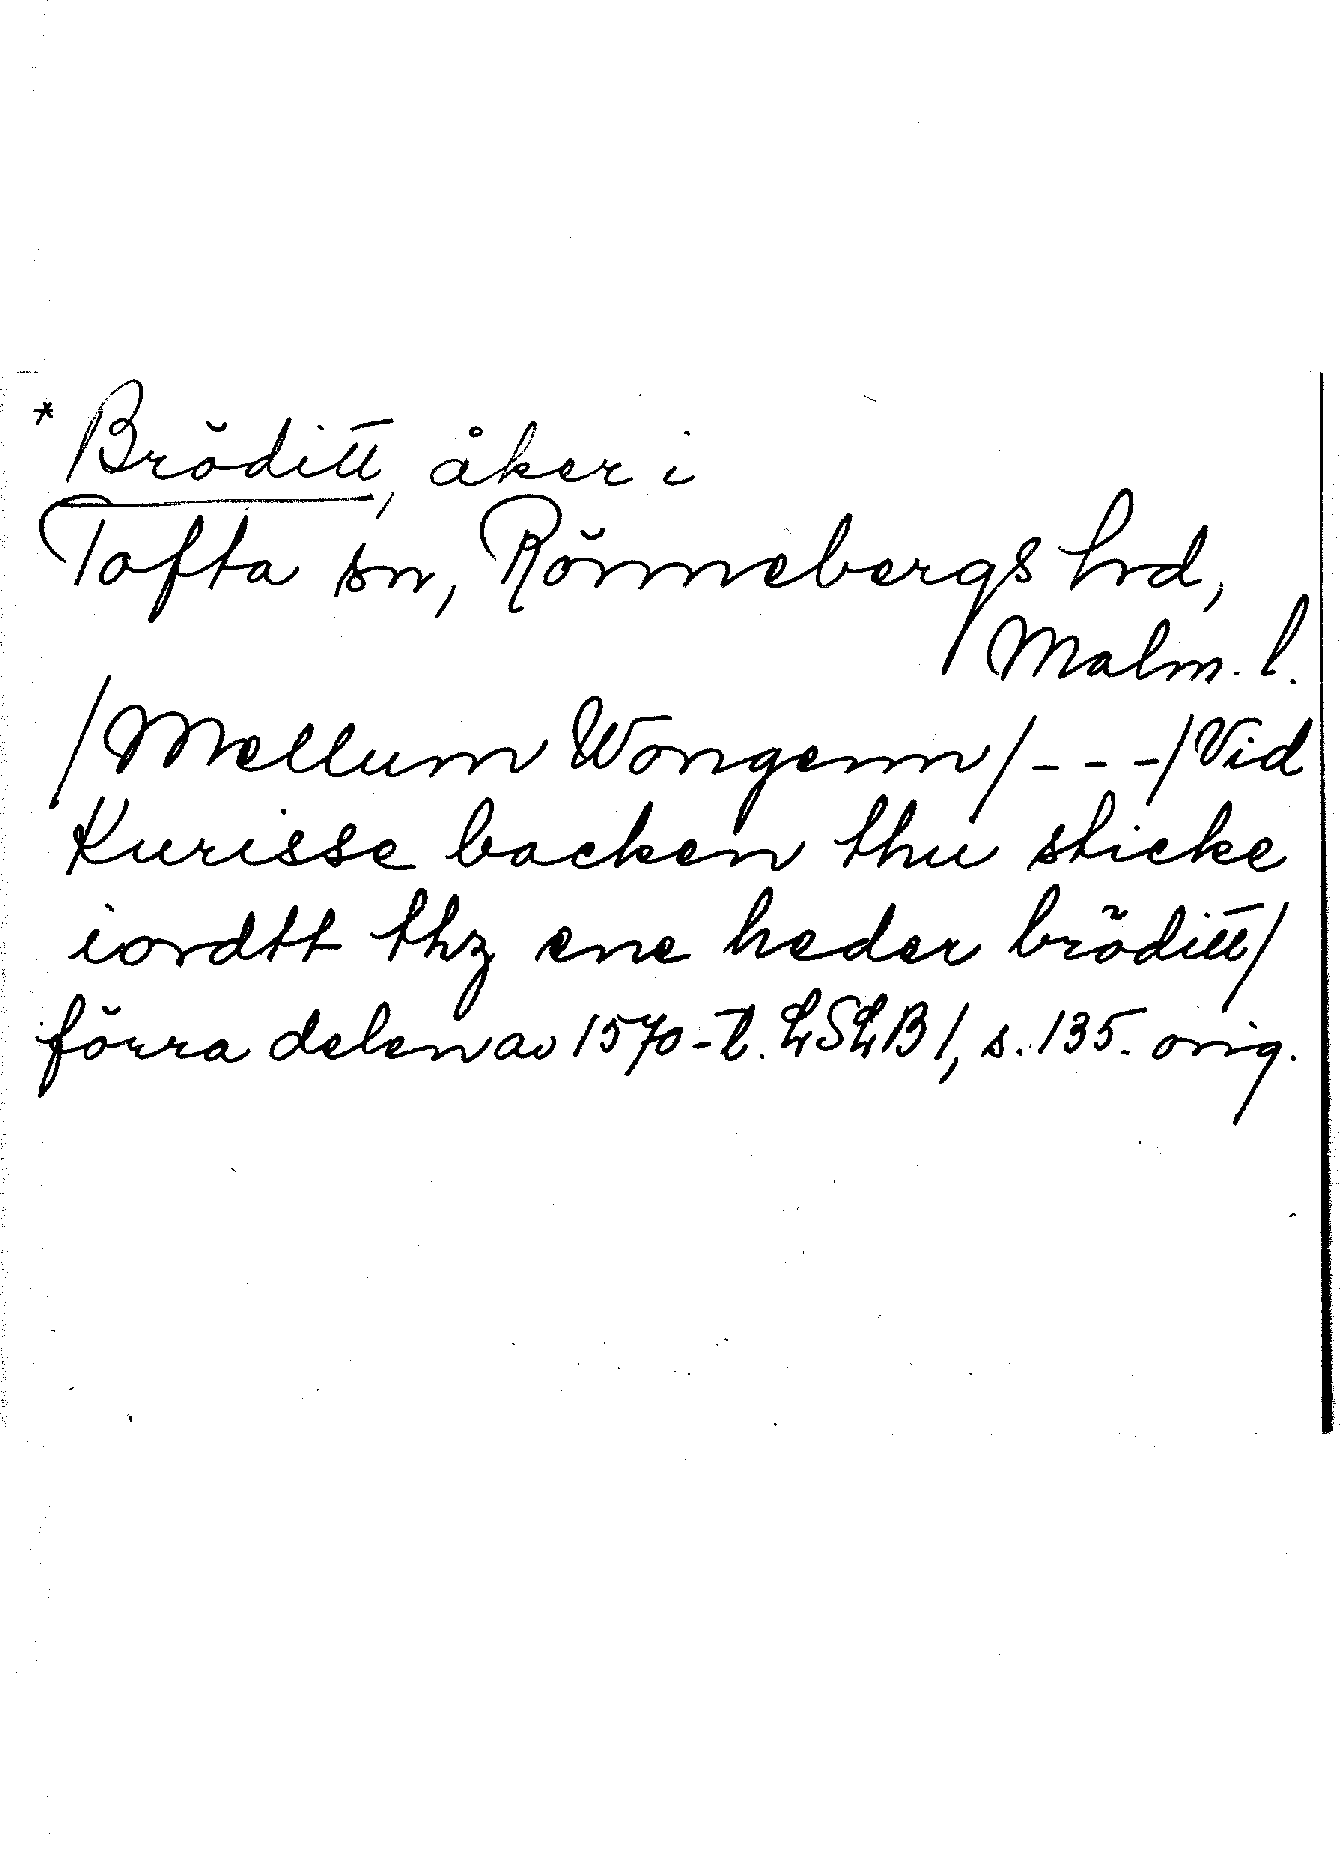 * Bröditt, åker i
Tofta sn, Rönnebergs hrd,
Malm. l.
/Mellum Wongenn/---/Vid
Kurisse backen thu sticke
iordtt thz ene heder bröditt/
förra delen av 1570-t. LSLB 1, s. 135. orig.